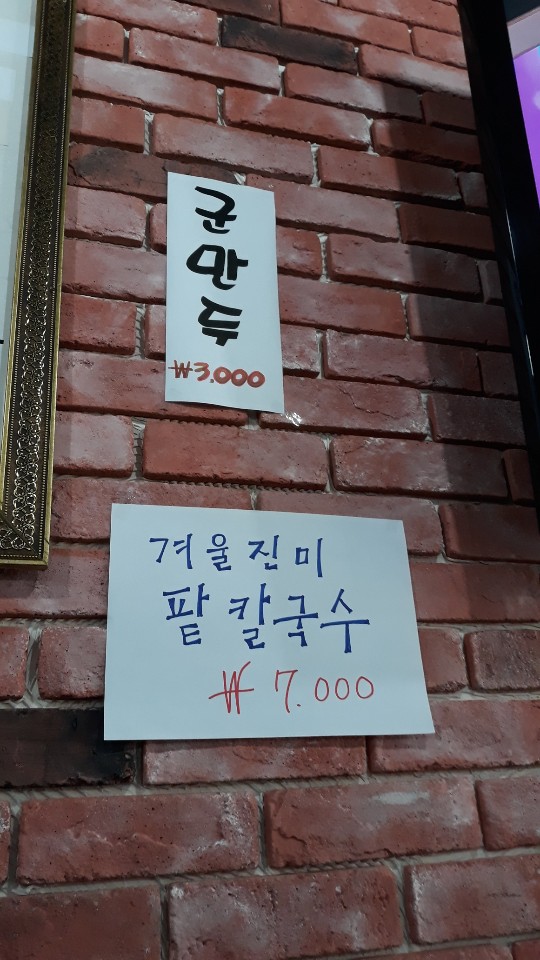 군
만
두
₩3.000
겨울진미
팥칼국수
₩7.000